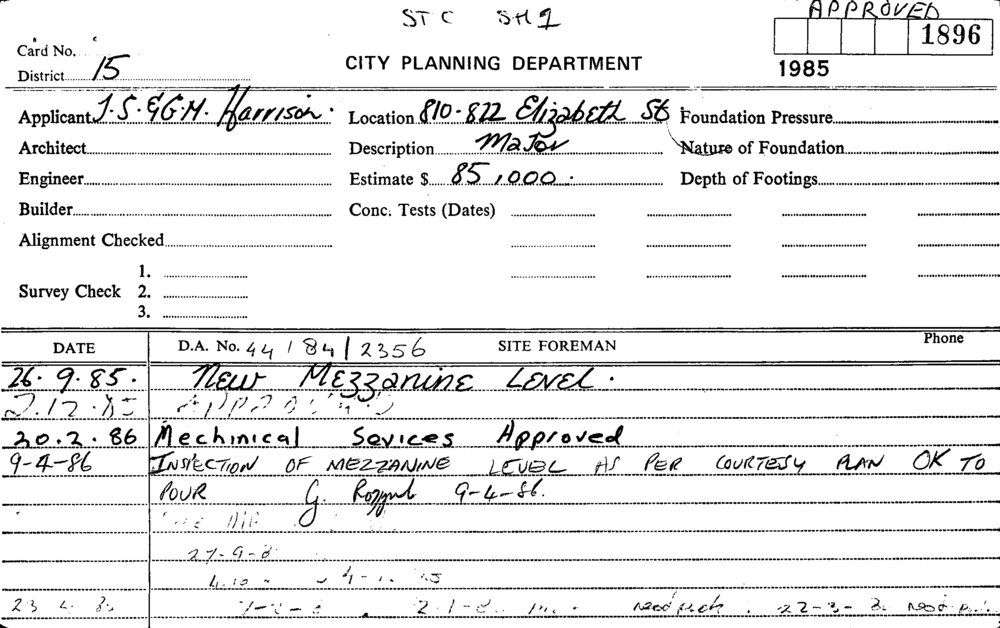 STC SH1 APPROVED
Card No. 1896
District 15 CITY PLANNING DEPARTMENT 1985
Applicant J.S. & G.M. Harrison. Location 810-822 Elizabeth St Foundation Pressure
Architect Description Major Nature of Foundation
Engineer Estimate $ 85,000. Depth of Footings
Builder Conc. Tests (Dates)
Alignment Checked
1.
Survey Check 2.
3.
DATE D.A. No. 44/84/2356 SITE FOREMAN Phone
26.9.85. NEW MEZZANINE LEVEL.
2.12.85 APPROVED
20.2.86 Mechinical Sevices Approved
9-4-86 INSPECTION OF MEZZANINE LEVEL AS PER COURTESY PLAN OK TO
POUR G. 9-4-86.
27-9-8
23